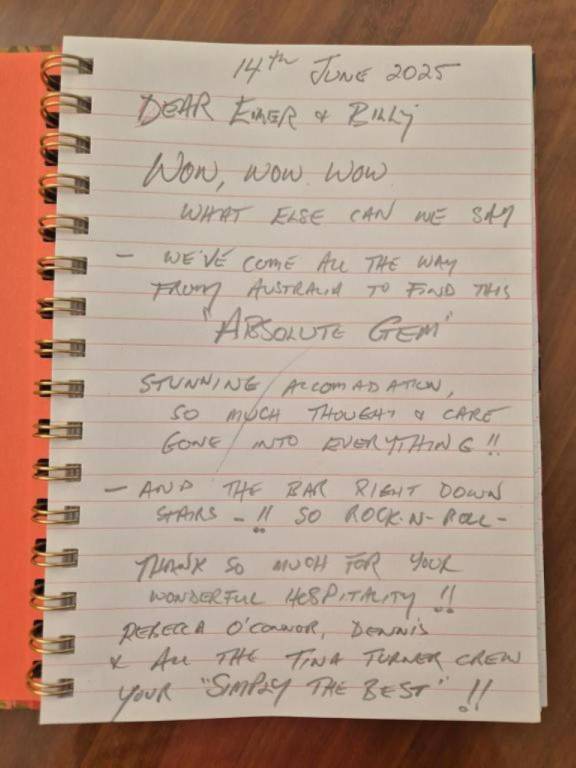 14th JUNE 2025
DEAR EIMER & BILLY
WOW, WOW WOW
WHAT ELSE CAN WE SAY
- WE'VE COME ALL THE WAY
FROM AUSTRALIA TO FIND THIS
"ABSOLUTE GEM"
STUNNING ACCOMADATION,
SO MUCH THOUGHT & CARE
GONE INTO EVERYTHING!!
- AND THE BAR RIGHT DOWN
STAIRS -!! SO ROCK-N-ROLL-
THANK SO MUCH FOR YOUR
WONDERFUL HOSPITALITY!!
REBECCA O'CONNOR, DENNIS
& ALL THE TINA TURNER CREW
YOUR "SIMPLY THE BEST"!!